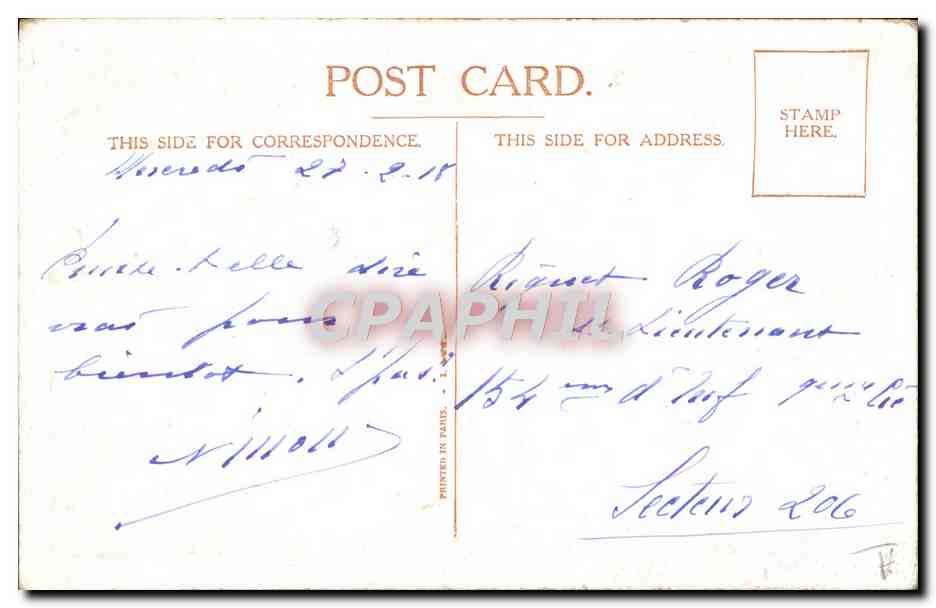 POST CARD.
THIS SIDE FOR CORRESPONDENCE.
THIS SIDE FOR ADDRESS.
STAMP
HERE.
27-2-18
Puisse-t-elle dire
vrai pour
bientôt.
Ninon
Riquet Roger
S/Lieutenant
154 eme d'Inf 9eme Cie
Secteur 206
PRINTED IN PARIS.
CPAPHIL